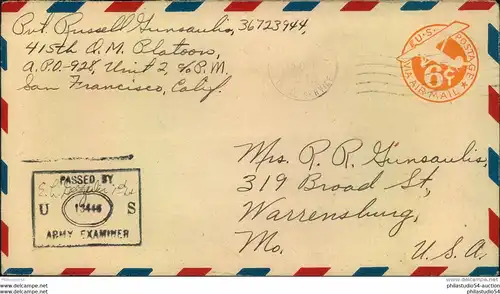 Pvt. Russell Gunsaulis, 36723944,
415th Q.M. Platoon,
A.P.O.-928, Unit 2, c/o P.M.
San Francisco, Calif.
U.S. POSTAGE
6¢
VIA AIR MAIL
Mrs. R. R. Gunsaulis,
319 Broad St,
Warrensburg,
Mo.
U.S.A.
PASSED BY
U S
ARMY EXAMINER
www.philastudio54-auction
philastudio54